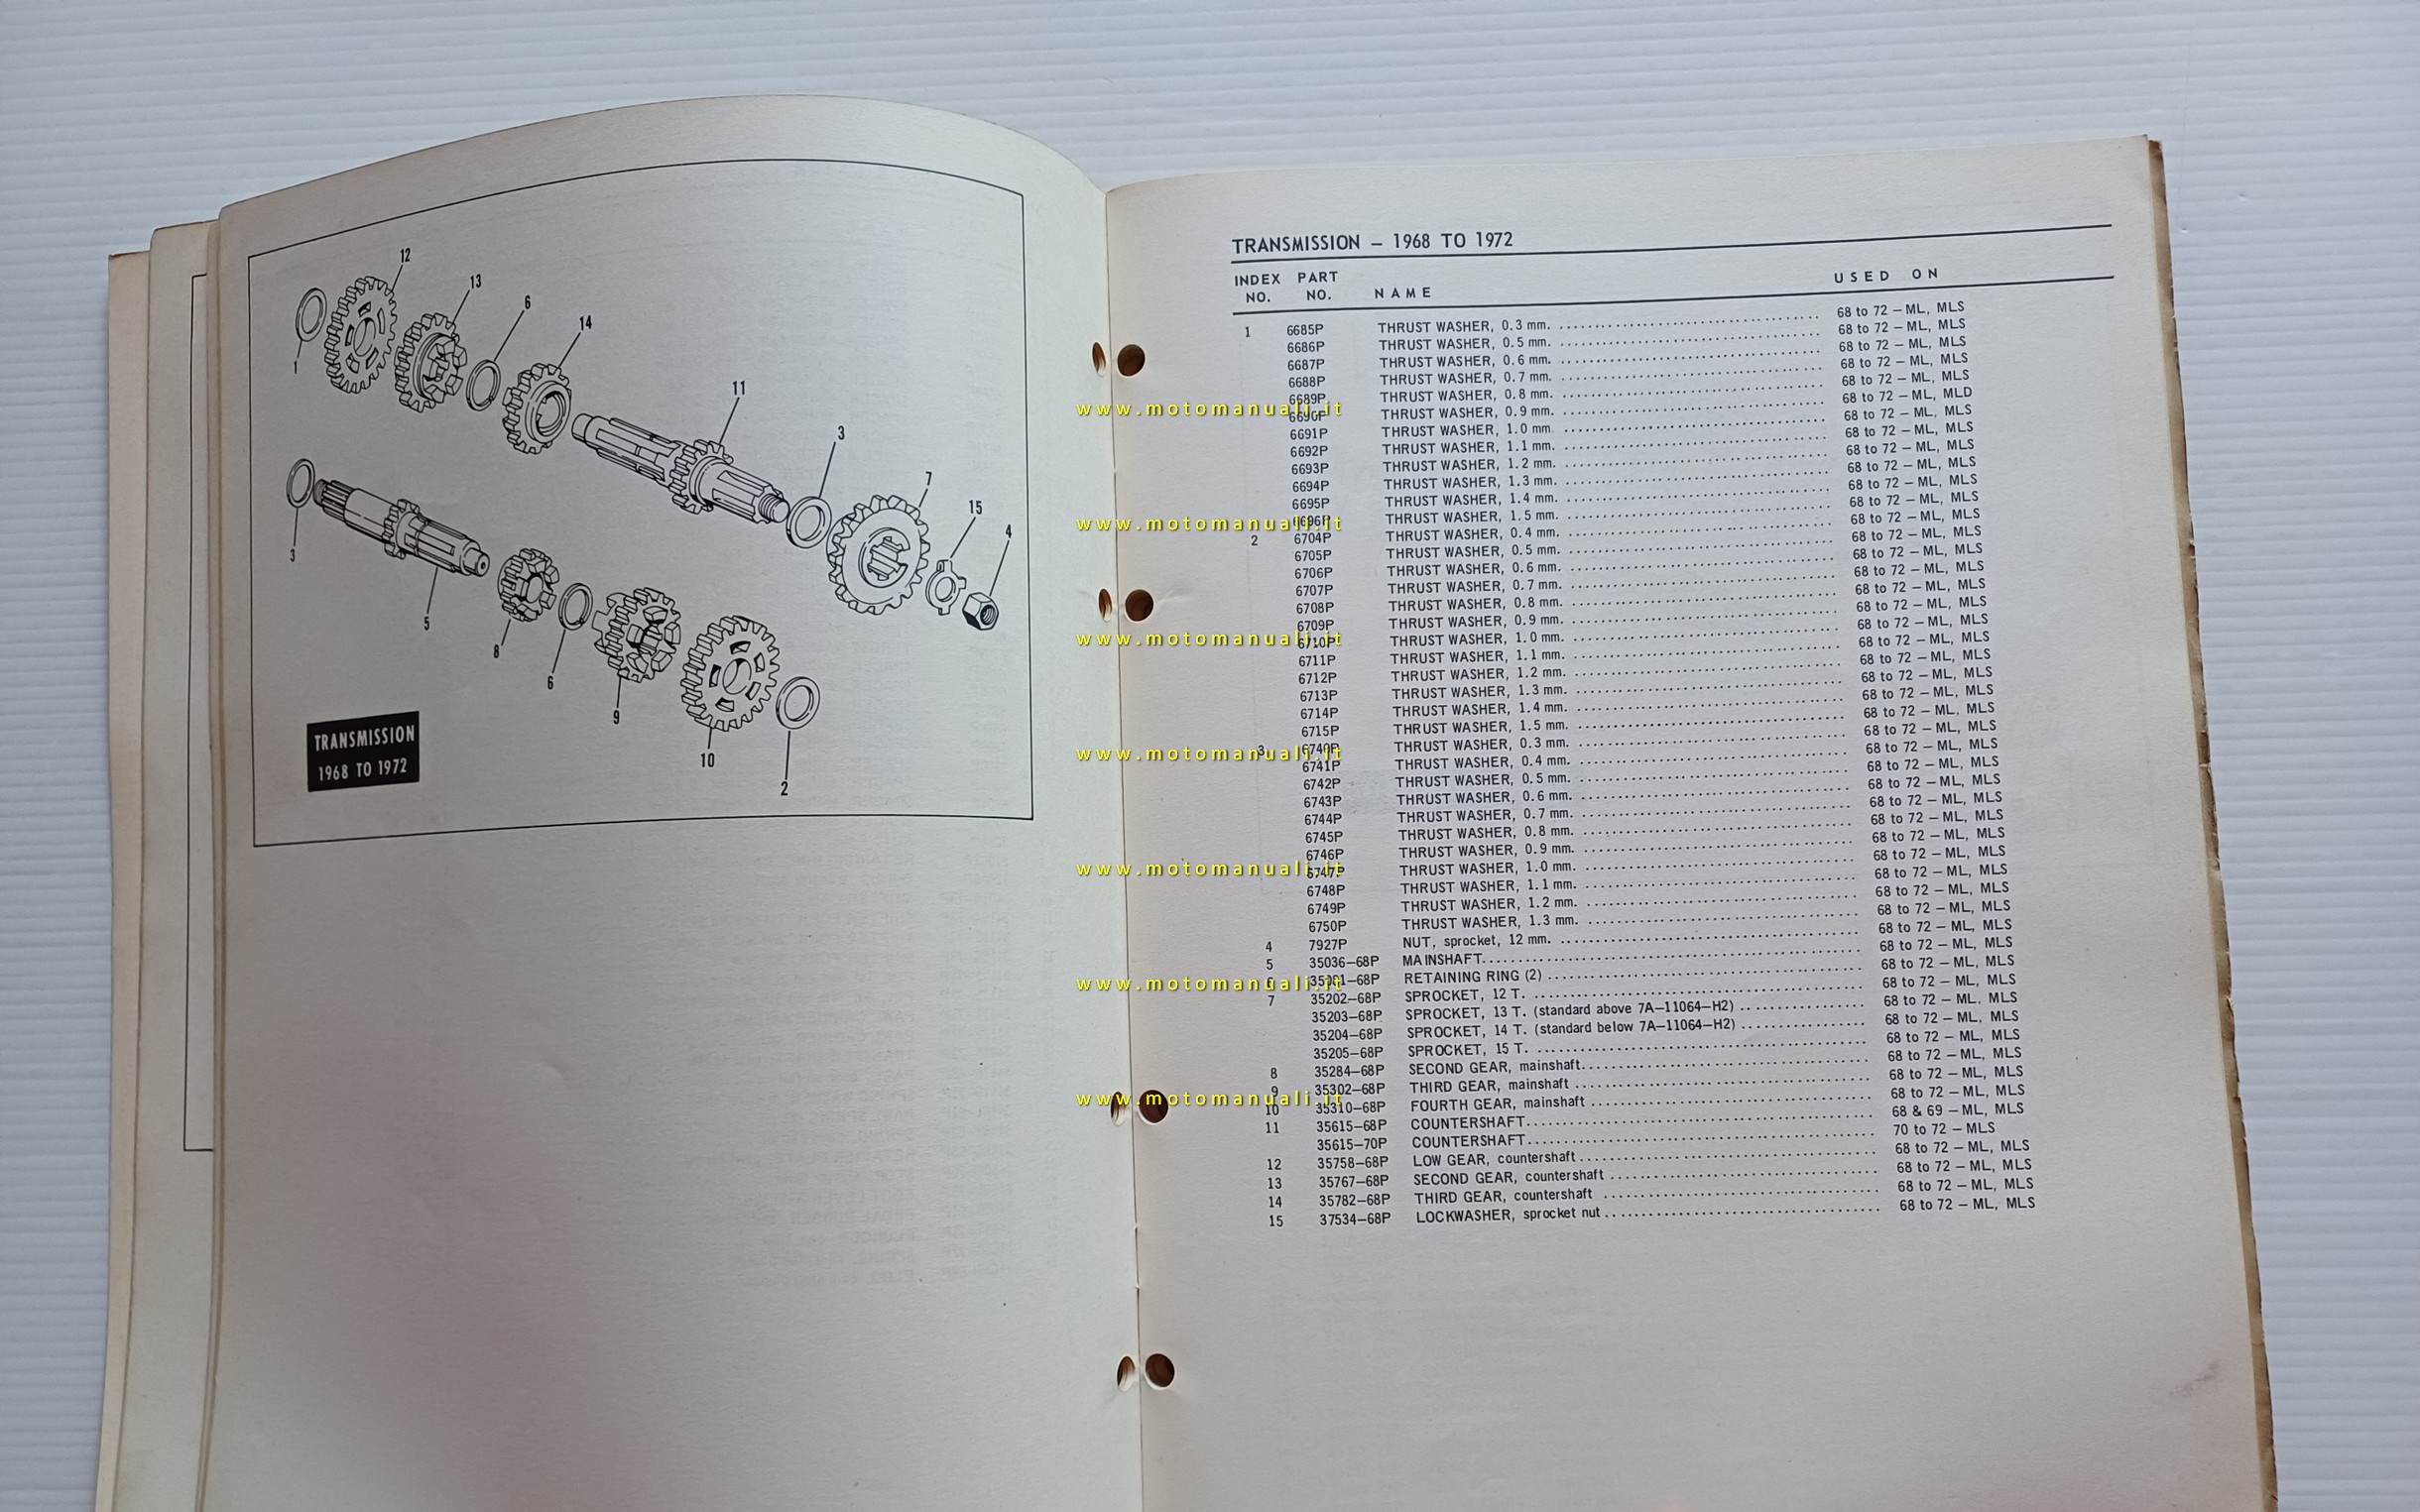 12
13
6
14
1
11
3
7
15
4
3
5
8
6
9
10
2
TRANSMISSION
1968 TO 1972
TRANSMISSION – 1968 TO 1972
INDEX NO. PART NO. NAME USED ON
1 6685P THRUST WASHER, 0.3 mm. 68 to 72 – ML, MLS
6686P THRUST WASHER, 0.5 mm. 68 to 72 – ML, MLS
6687P THRUST WASHER, 0.6 mm. 68 to 72 – ML, MLS
6688P THRUST WASHER, 0.7 mm. 68 to 72 – ML, MLS
6689P THRUST WASHER, 0.8 mm. 68 to 72 – ML, MLS
6690P THRUST WASHER, 0.9 mm. 68 to 72 – ML, MLD
6691P THRUST WASHER, 1.0 mm. 68 to 72 – ML, MLS
6692P THRUST WASHER, 1.1 mm. 68 to 72 – ML, MLS
6693P THRUST WASHER, 1.2 mm. 68 to 72 – ML, MLS
6694P THRUST WASHER, 1.3 mm. 68 to 72 – ML, MLS
6695P THRUST WASHER, 1.4 mm. 68 to 72 – ML, MLS
6696P THRUST WASHER, 1.5 mm. 68 to 72 – ML, MLS
2 6704P THRUST WASHER, 0.4 mm. 68 to 72 – ML, MLS
6705P THRUST WASHER, 0.5 mm. 68 to 72 – ML, MLS
6706P THRUST WASHER, 0.6 mm. 68 to 72 – ML, MLS
6707P THRUST WASHER, 0.7 mm. 68 to 72 – ML, MLS
6708P THRUST WASHER, 0.8 mm. 68 to 72 – ML, MLS
6709P THRUST WASHER, 0.9 mm. 68 to 72 – ML, MLS
6710P THRUST WASHER, 1.0 mm. 68 to 72 – ML, MLS
6711P THRUST WASHER, 1.1 mm. 68 to 72 – ML, MLS
6712P THRUST WASHER, 1.2 mm. 68 to 72 – ML, MLS
6713P THRUST WASHER, 1.3 mm. 68 to 72 – ML, MLS
6714P THRUST WASHER, 1.4 mm. 68 to 72 – ML, MLS
6715P THRUST WASHER, 1.5 mm. 68 to 72 – ML, MLS
3 6740P THRUST WASHER, 0.3 mm. 68 to 72 – ML, MLS
6741P THRUST WASHER, 0.4 mm. 68 to 72 – ML, MLS
6742P THRUST WASHER, 0.5 mm. 68 to 72 – ML, MLS
6743P THRUST WASHER, 0.6 mm. 68 to 72 – ML, MLS
6744P THRUST WASHER, 0.7 mm. 68 to 72 – ML, MLS
6745P THRUST WASHER, 0.8 mm. 68 to 72 – ML, MLS
6746P THRUST WASHER, 0.9 mm. 68 to 72 – ML, MLS
6747P THRUST WASHER, 1.0 mm. 68 to 72 – ML, MLS
6748P THRUST WASHER, 1.1 mm. 68 to 72 – ML, MLS
6749P THRUST WASHER, 1.2 mm. 68 to 72 – ML, MLS
6750P THRUST WASHER, 1.3 mm. 68 to 72 – ML, MLS
4 7927P NUT, sprocket, 12 mm. 68 to 72 – ML, MLS
5 35036–68P MAINSHAFT 68 to 72 – ML, MLS
6 35081–68P RETAINING RING (2) 68 to 72 – ML, MLS
7 35202–68P SPROCKET, 12 T. 68 to 72 – ML, MLS
35203–68P SPROCKET, 13 T. (standard above 7A–11064–H2) 68 to 72 – ML, MLS
35204–68P SPROCKET, 14 T. (standard below 7A–11064–H2) 68 to 72 – ML, MLS
35205–68P SPROCKET, 15 T. 68 to 72 – ML, MLS
8 35284–68P SECOND GEAR, mainshaft 68 to 72 – ML, MLS
9 35302–68P THIRD GEAR, mainshaft 68 to 72 – ML, MLS
10 35310–68P FOURTH GEAR, mainshaft 68 to 72 – ML, MLS
11 35615–68P COUNTERSHAFT 68 & 69 – ML, MLS
35615–70P COUNTERSHAFT 70 to 72 – MLS
12 35758–68P LOW GEAR, countershaft 68 to 72 – ML, MLS
13 35767–68P SECOND GEAR, countershaft 68 to 72 – ML, MLS
14 35782–68P THIRD GEAR, countershaft 68 to 72 – ML, MLS
15 37534–68P LOCKWASHER, sprocket nut 68 to 72 – ML, MLS
www.motomanuali.it
www.motomanuali.it
www.motomanuali.it
www.motomanuali.it
www.motomanuali.it
www.motomanuali.it
www.motomanuali.it